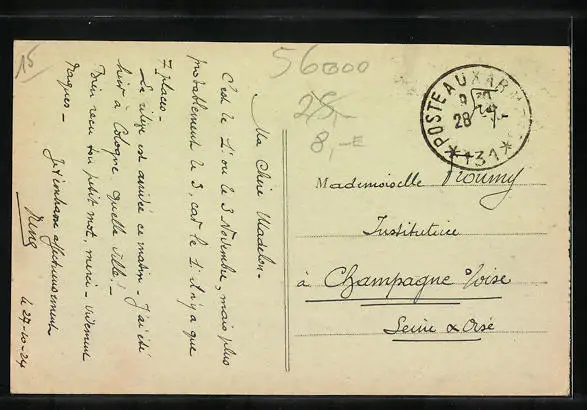 15
56000
25,-
8,-E
POSTE AUX ARMÉES
28
*131*
Ma Chère Madelon -
C'est le 2 ou le 3 Novembre, mais plus
probablement le 3, car le 2 il n'y a que
7 places -
La valise est arrivée ce matin - J'ai été
hier à Cologne, quelle ville! -
Bien reçu ton petit mot, merci - vivement
Je t'embrasse affectueusement
le 27-10-24
Mademoiselle Roumy
Institutrice
à Champagne s/oise
Seine & Oise